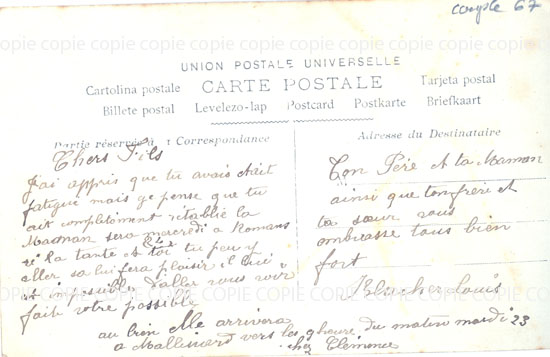 compte 67
copie copie copie copie copie copie copie copie copie copie
UNION POSTALE UNIVERSELLE
Cartolina postale CARTE POSTALE Tarjeta postal
Billete postal Levelezo-lap Postcard Postkarte Briefkaart
Partie réservée à Correspondance
Chers Fils
J'ai appris que tu avais était
fatigué mais je pense que tu
ait complètement rétablie la
Maman sera mercredi a Romans
si la tante et toi tu peu y
aller sa lui fera plaisir il
est impossible d'aller vous voir
faite votre possible
au bien Elle arrivera
a vers les 9 heure du matin mardi 23
chez Clémence
Adresse du Destinataire
Ton Père et ta Maman
ainsi que ton frère et
ta sœur vous
embrasse tous bien
fort
Louis